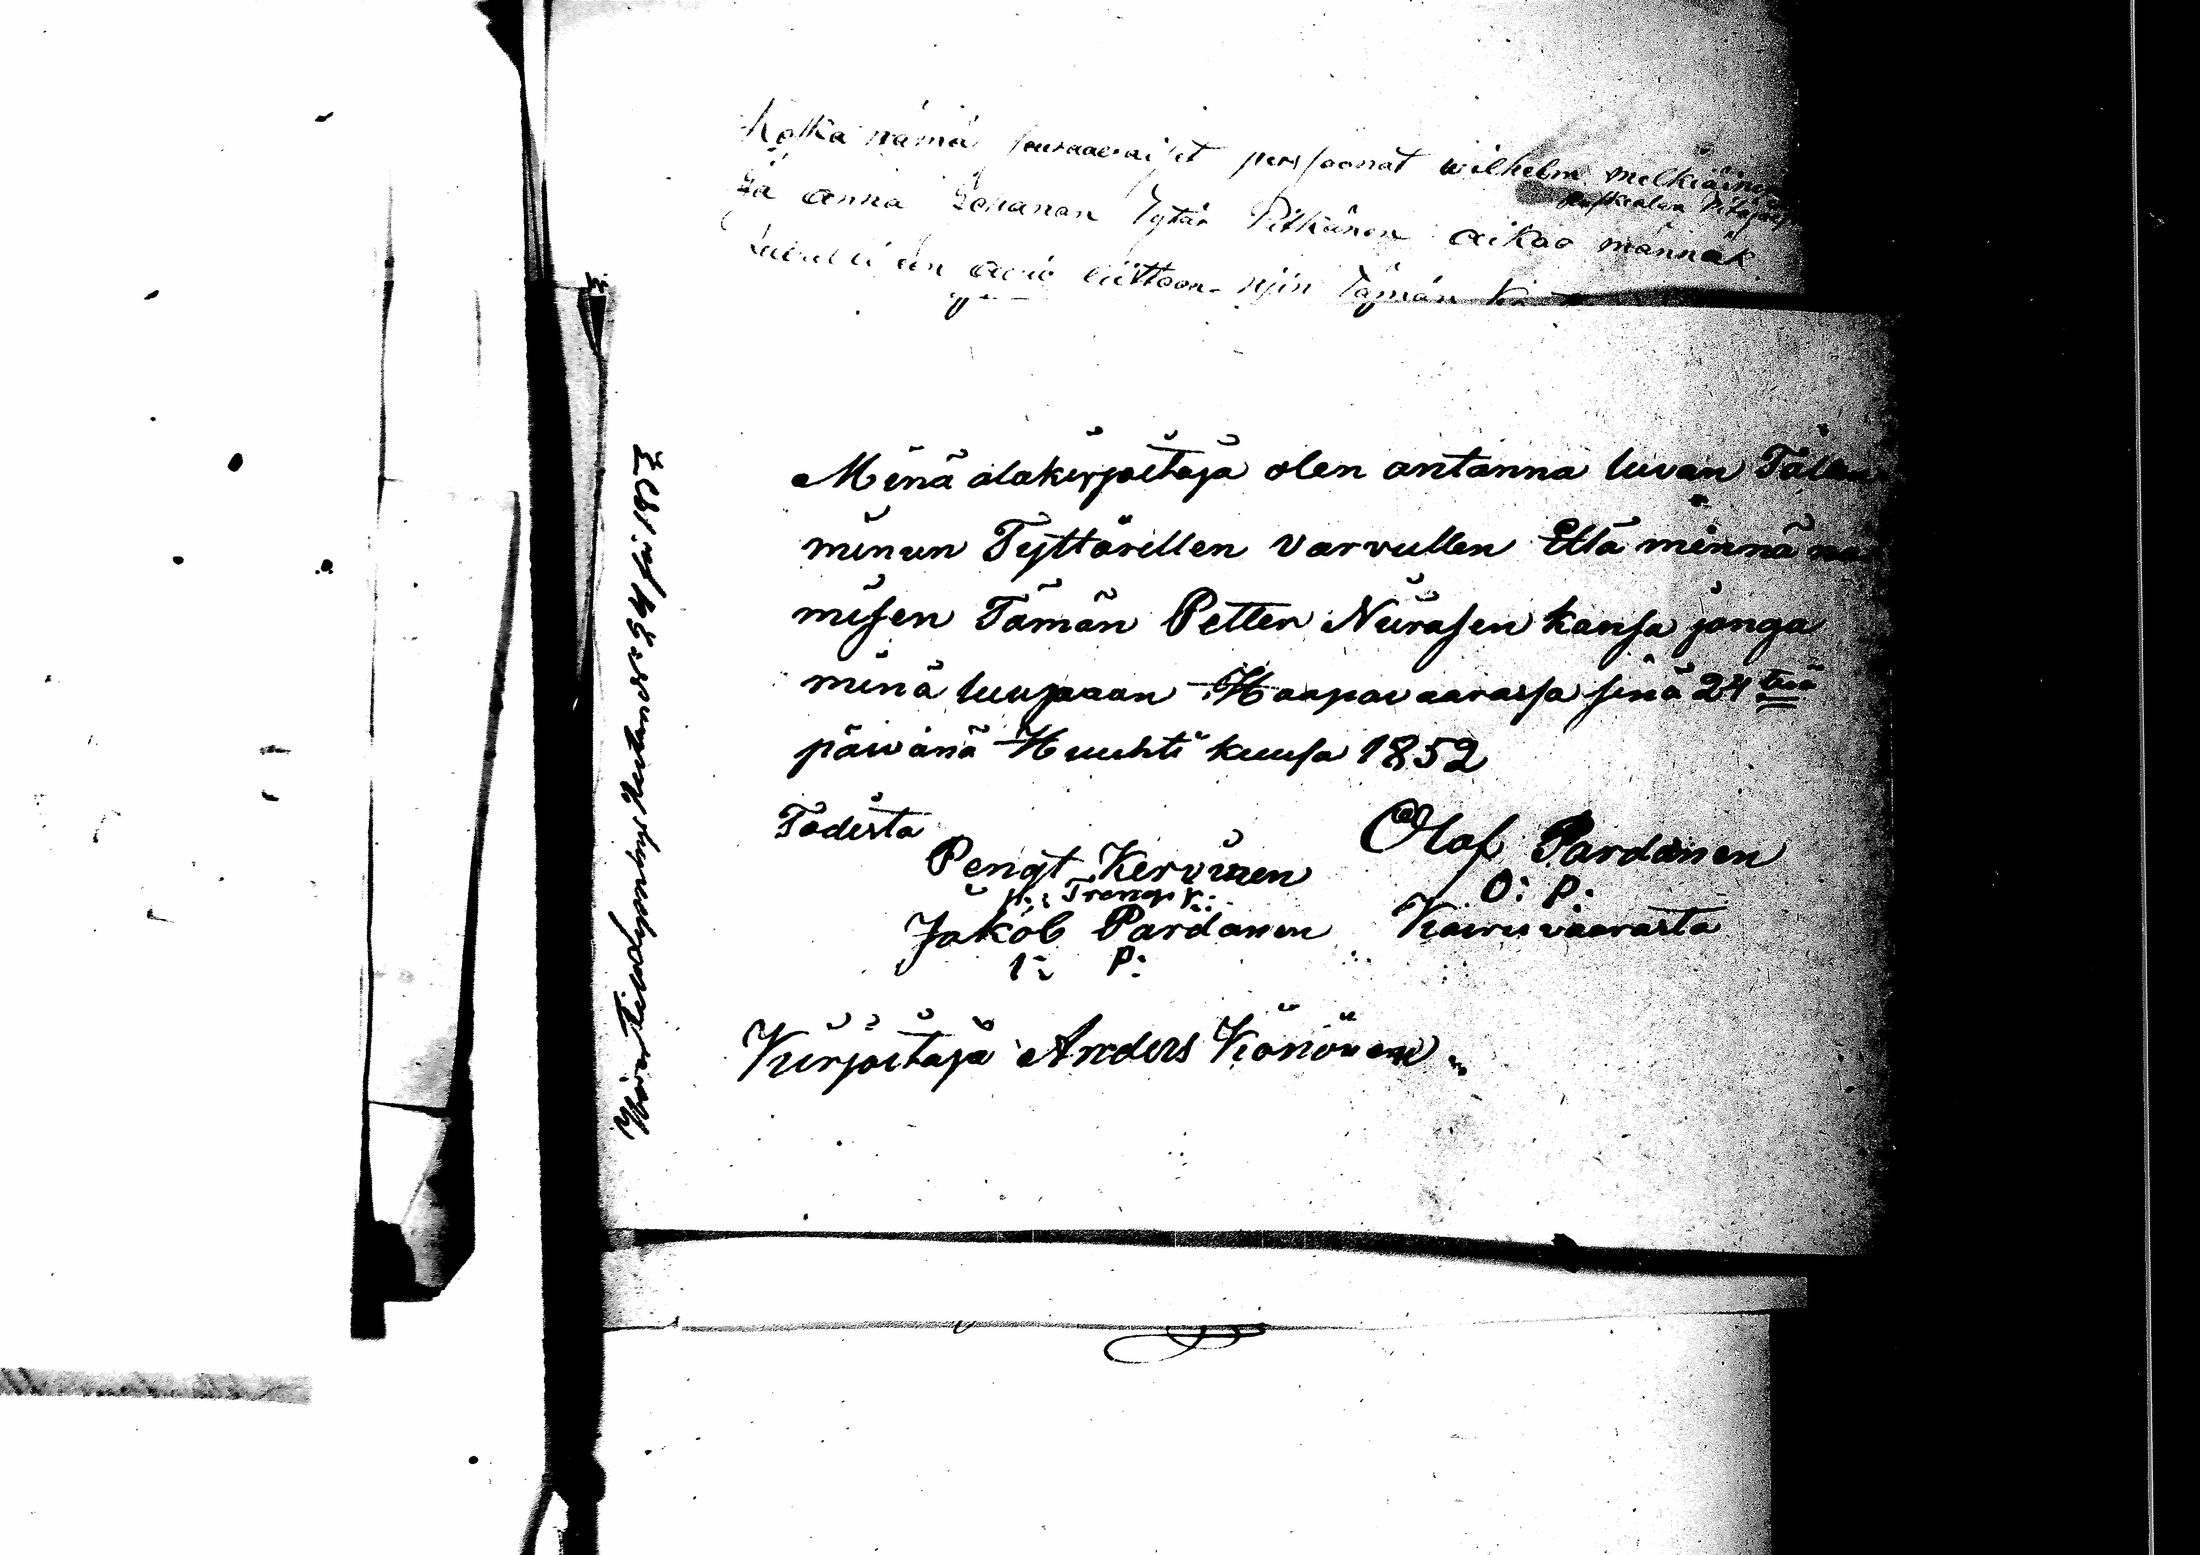 Koska nämä seuraavaiset persoonat wilhelm melkiäinen
Ja anna Johanan Tytär Pitkänen aikao männäk
Lairelli sen avio liittoon niin Tämän
Minä alakirjoitaja olen antanna luvan Tällen
minun Tyttärellen varvullen Että männä
misen Tämän Petter Niirasen kansa jonga
minä luupaan Haapavaarassa sinä 24 tenä
päivänä Huuhti kuusa 1852
Todista
Pengt Kervinen
Treng
Jakob Pardanen
I: P:
Olof Pardanen
O: P:
Kaivuvaarasta
Kirjoitaja Anders Könönen